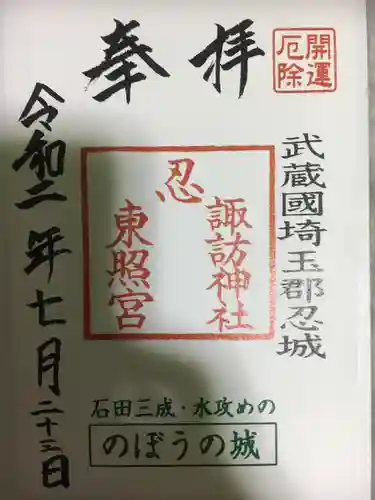 奉拝
開運
厄除
武蔵國埼玉郡忍城
忍
諏訪神社
東照宮
令和二年七月二十三日
石田三成・水攻めの
のぼうの城